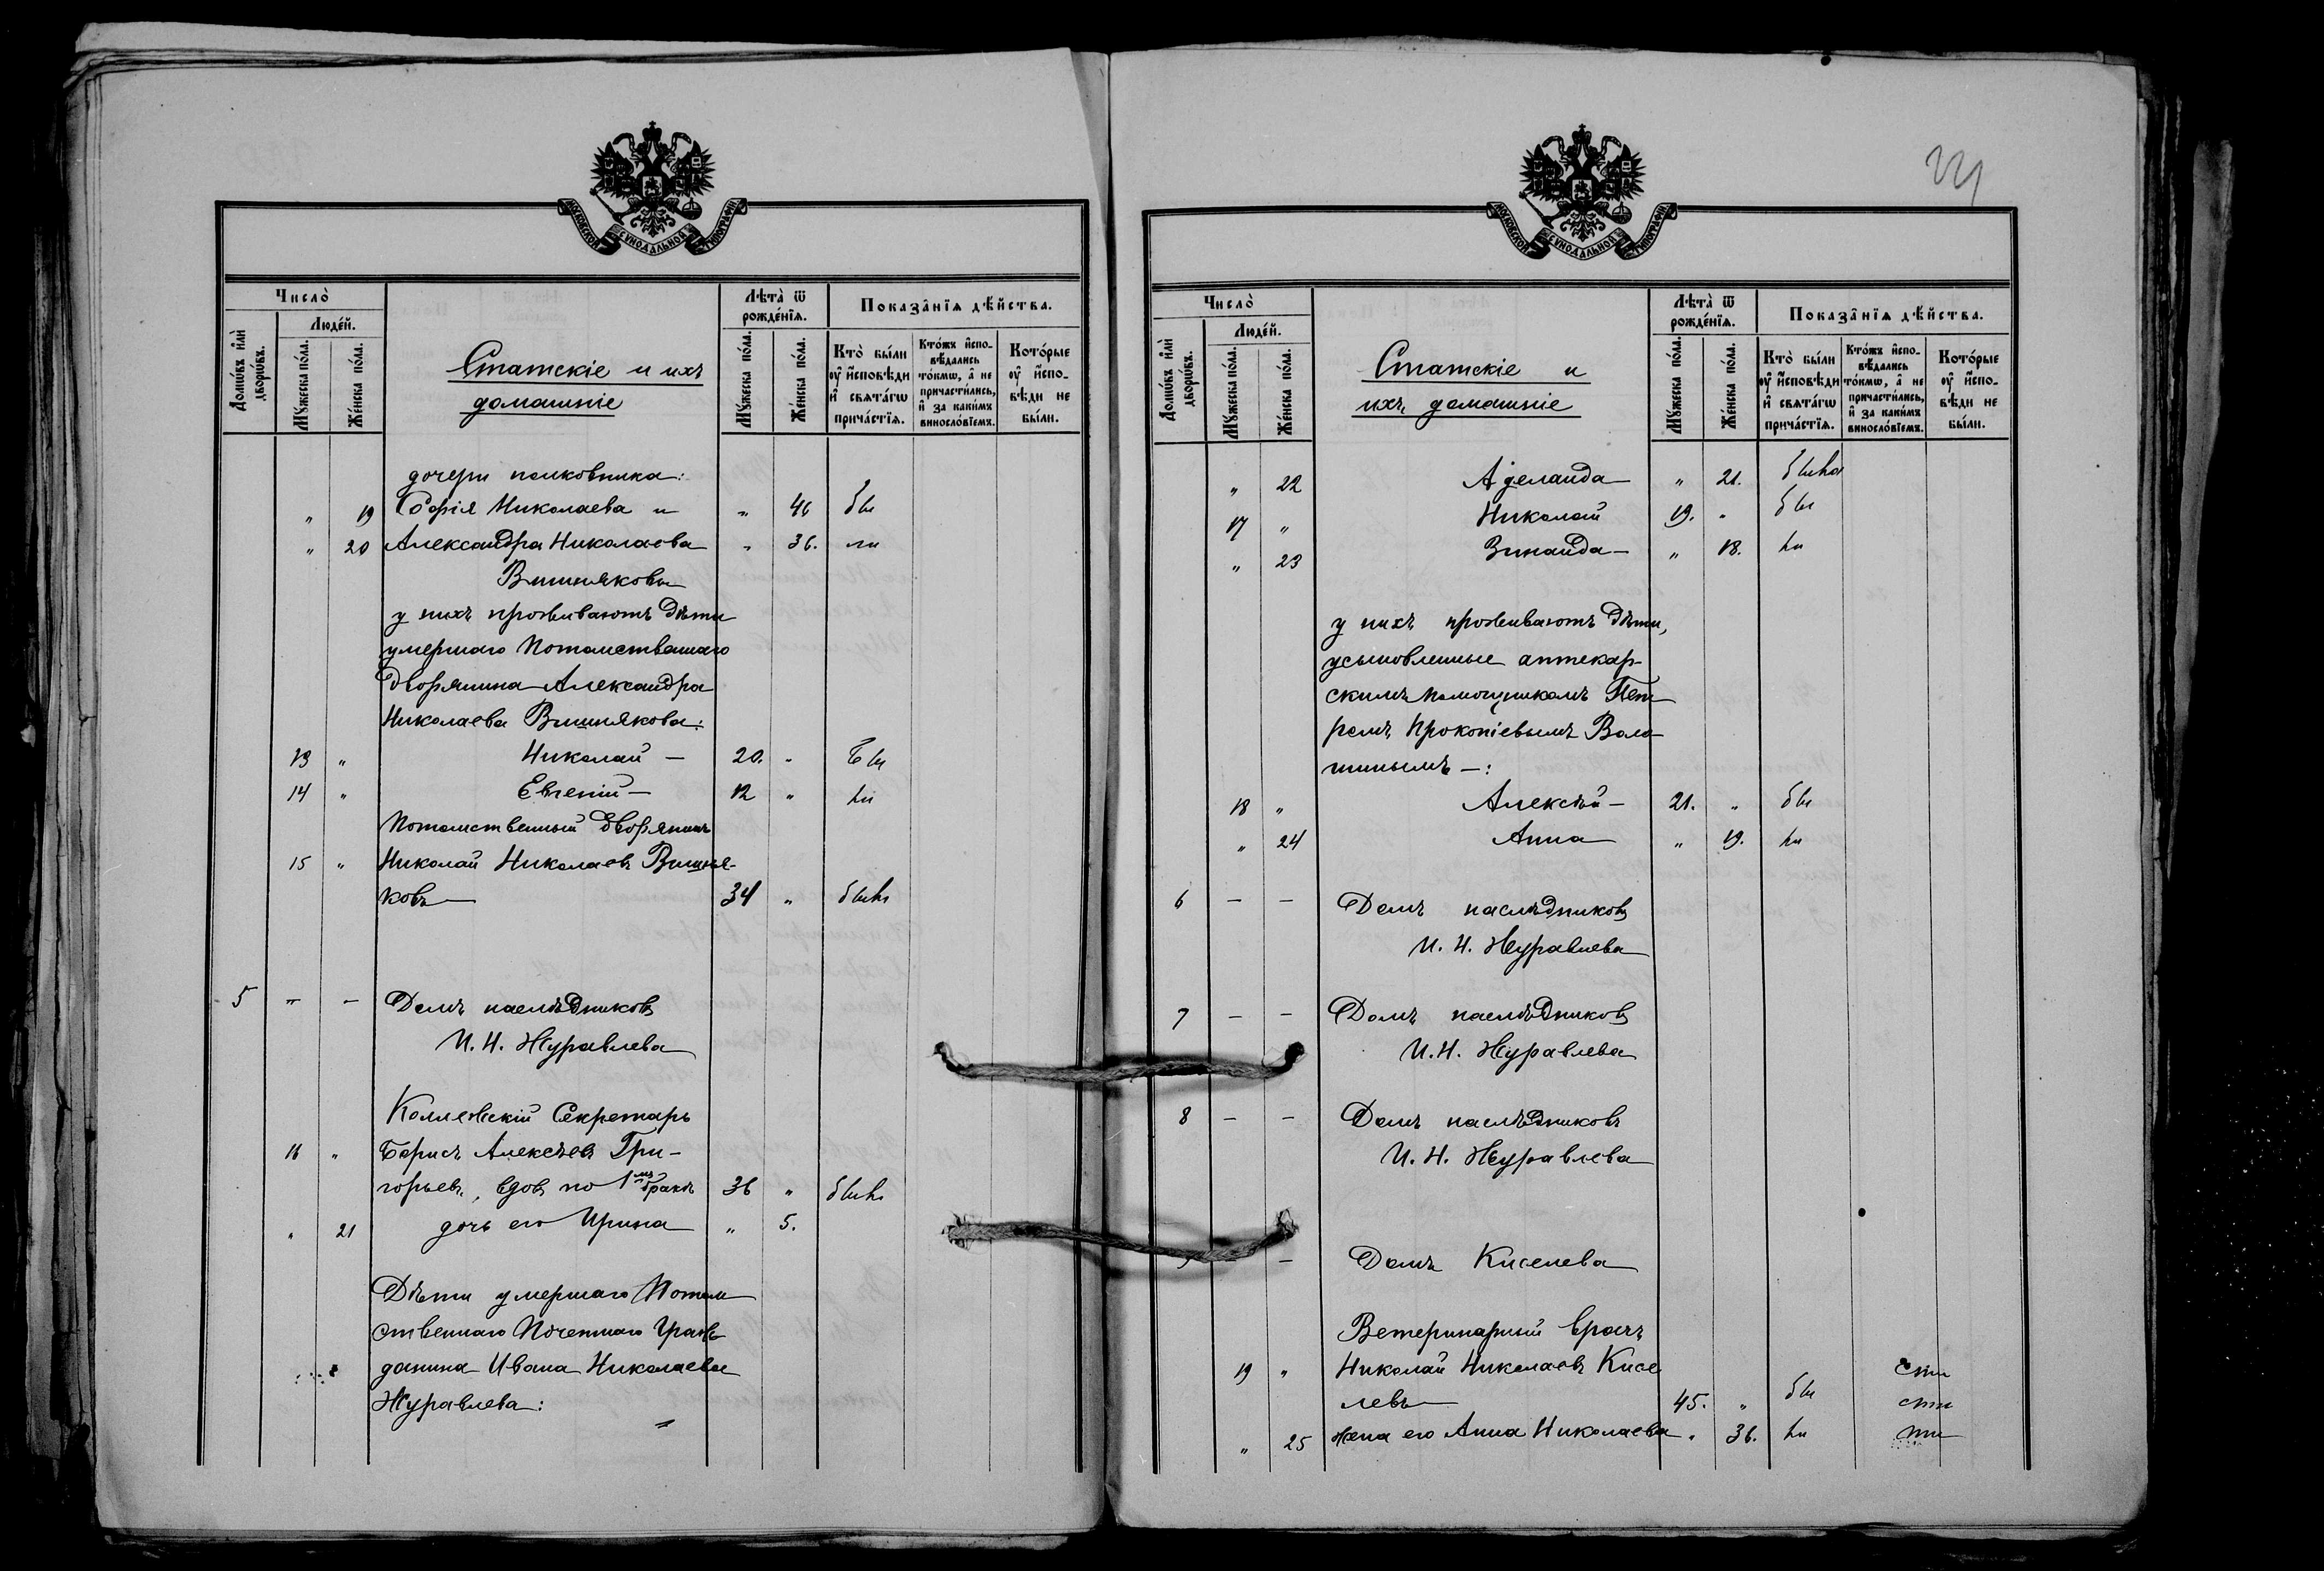 МОСКОВСКОЙ СѴНОДАЛЬНОЙ ТИПОГРАФІИ
Число̀
Домѡ́въ и҆лѝ дворѡ́въ.
Люде́й.
Мꙋ́жеска по́ла.
Же́нска по́ла.
Статскіе и ихъ
домашніе
Лѣта̀ ѿ рожде́нїѧ.
Мꙋ́жеска по́ла.
Же́нска по́ла.
Показа̑нїѧ дѣ́йства.
Кто̀ бы́ли ᲂу҆ и҆сповѣ́ди и҆ свѧта́гѡ прича́стїѧ.
Кто́жъ и҆спо-вѣ́дались то́кмѡ, а҆ не причасти́лись, и҆ за каки́мъ винослові́емъ.
Кото́рые ᲂу҆ и҆спо-вѣ́ди не бы́ли.
дочери полковника:
" 19 Софія Николаева и " 46 бы
" 20 Александра Николаева " 36. ли
Вишняковы
у нихъ проживаютъ дѣти
умершаго Потомственнаго
дворянина Александра
Николаева Вишнякова:
13 " Николай — 20. " бы
14 " Евгеній — 12 " ли
Потомственный дворянинъ
15 " Николай Николаевъ Вишня-
ковъ 34 " былъ
5 — — Домъ наслѣдниковъ
И. Н. Журавлева
Коллежскій Секретарь
16 " Борисъ Алексѣевъ Гри-
горьевъ, вдовъ по 1мъ бракѣ 36 " былъ
" 21 дочь его Ирина " 5.
Дѣти умершаго Потом
ственнаго Почетнаго Граж-
данина Ивана Николаева
Журавлева:
221
МОСКОВСКОЙ СѴНОДАЛЬНОЙ ТИПОГРАФІИ
Число̀
Домѡ́въ и҆лѝ дворѡ́въ.
Люде́й.
Мꙋ́жеска по́ла.
Же́нска по́ла.
Статскіе и
ихъ домашніе
Лѣта̀ ѿ рожде́нїѧ.
Мꙋ́жеска по́ла.
Же́нска по́ла.
Показа̑нїѧ дѣ́йства.
Кто̀ бы́ли ᲂу҆ и҆сповѣ́ди и҆ свѧта́гѡ прича́стїѧ.
Кто́жъ и҆спо-вѣ́дались то́кмѡ, а҆ не причасти́лись, и҆ за каки́мъ винослові́емъ.
Кото́рые ᲂу҆ и҆спо-вѣ́ди не бы́ли.
" 22 Аделаида " 21. была
17 " Николай 19. " бы
" 23 Зинаида — " 18. ли
у нихъ проживаютъ дѣти,
усыновленные аптекар-
скимъ помощникомъ Пет
ромъ Прокопіевымъ Воло-
шинымъ —:
18 " Алексѣй — 21. " бы
" 24 Анна " 19. ли
6 — — Домъ наслѣдниковъ
И. Н. Журавлева
7 — — Домъ наслѣдниковъ
И. Н. Журавлева
8 — — Домъ наслѣдниковъ
И. Н. Журавлева
— Домъ Киселева
Ветеринарный врачъ
19 " Николай Николаевъ Кисе
левъ 45. " бы
" 25 жена его Анна Николаева " 36. ли